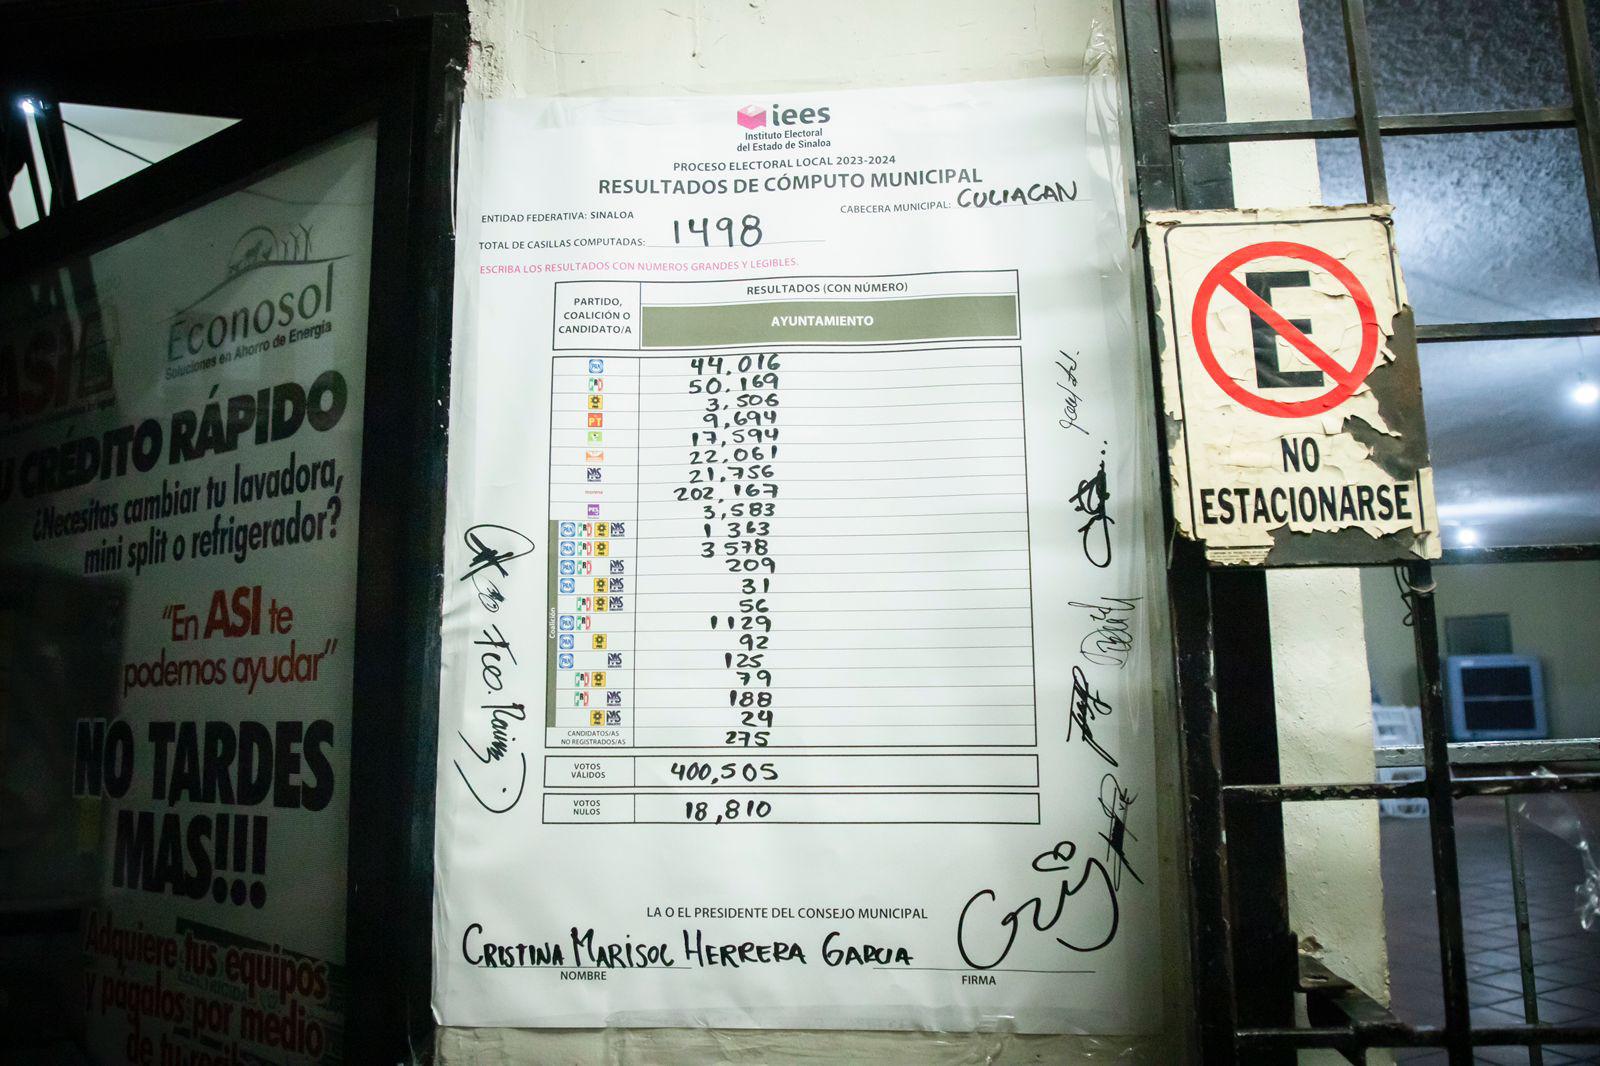 iees
Instituto Electoral
del Estado de Sinaloa
PROCESO ELECTORAL LOCAL 2023-2024
RESULTADOS DE CÓMPUTO MUNICIPAL
ENTIDAD FEDERATIVA: SINALOA
CABECERA MUNICIPAL: CULIACAN
TOTAL DE CASILLAS COMPUTADAS: 1498
ESCRIBA LOS RESULTADOS CON NÚMEROS GRANDES Y LEGIBLES.
PARTIDO,
COALICIÓN O
CANDIDATO/A
RESULTADOS (CON NÚMERO)
AYUNTAMIENTO
PAN 44,016
PRD 50.169
3,506
PT 9,694
17,594
22,061
PAS 21,756
morena 202,167
PES 3,583
Coalición
PAN PAS 1 363
PAN 3 578
PAN PAS 209
PAN PAS 31
PAS 56
PAN 1129
PAN 92
PAN PAS 125
79
PAS 188
PAS 24
CANDIDATOS/AS
NO REGISTRADOS/AS
275
VOTOS
VÁLIDOS
400,505
VOTOS
NULOS
18,810
LA O EL PRESIDENTE DEL CONSEJO MUNICIPAL
CRISTINA MARISOL HERRERA GARCIA
NOMBRE
FIRMA
Econosol
Soluciones en Ahorro de Energía
CRÉDITO RÁPIDO
¿Necesitas cambiar tu lavadora,
mini split o refrigerador?
"En ASI te
podemos ayudar"
NO TARDES
MÁS!!!
Adquiere tus equipos
y págalos por medio
de tu
E
NO
ESTACIONARSE